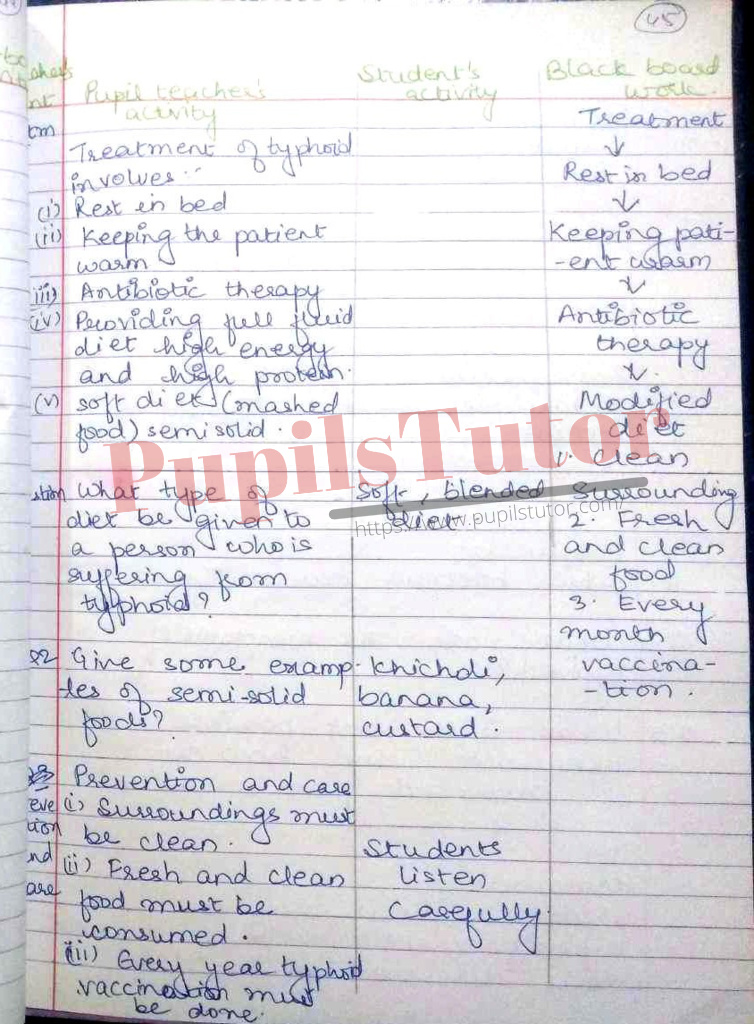 45
Pupil teacher's
activity
Student's
activity
Black board
work.
Treatment of typhoid
involves :-
(i) Rest in bed
(ii) Keeping the patient
warm
iii) Antibiotic therapy
(iv) Providing full fluid
diet high energy
and high protein.
(v) soft diet (mashed
food) semisolid.
stion What type of
diet be given to
a person who is
suffering from
typhoid?
soft, blended
diet
Q2 Give some examp-
-les of semi-solid
foods?
Khichdi,
banana,
custard.
Prevention and care
(i) Surroundings must
be clean.
(ii) Fresh and clean
food must be
consumed.
(iii) Every year typhoid
vaccination must
be done.
eve
tion
nd
are
Students
listen
carefully.
Treatment
↓
Rest in bed
↓
Keeping pati-
-ent warm
↓
Antibiotic
therapy
↓
Modified
diet
1. clean
surrounding
2. Fresh
and clean
food
3. Every
month
vaccina-
-tion.
PupilsTutor
https://www.pupilstutor.com/